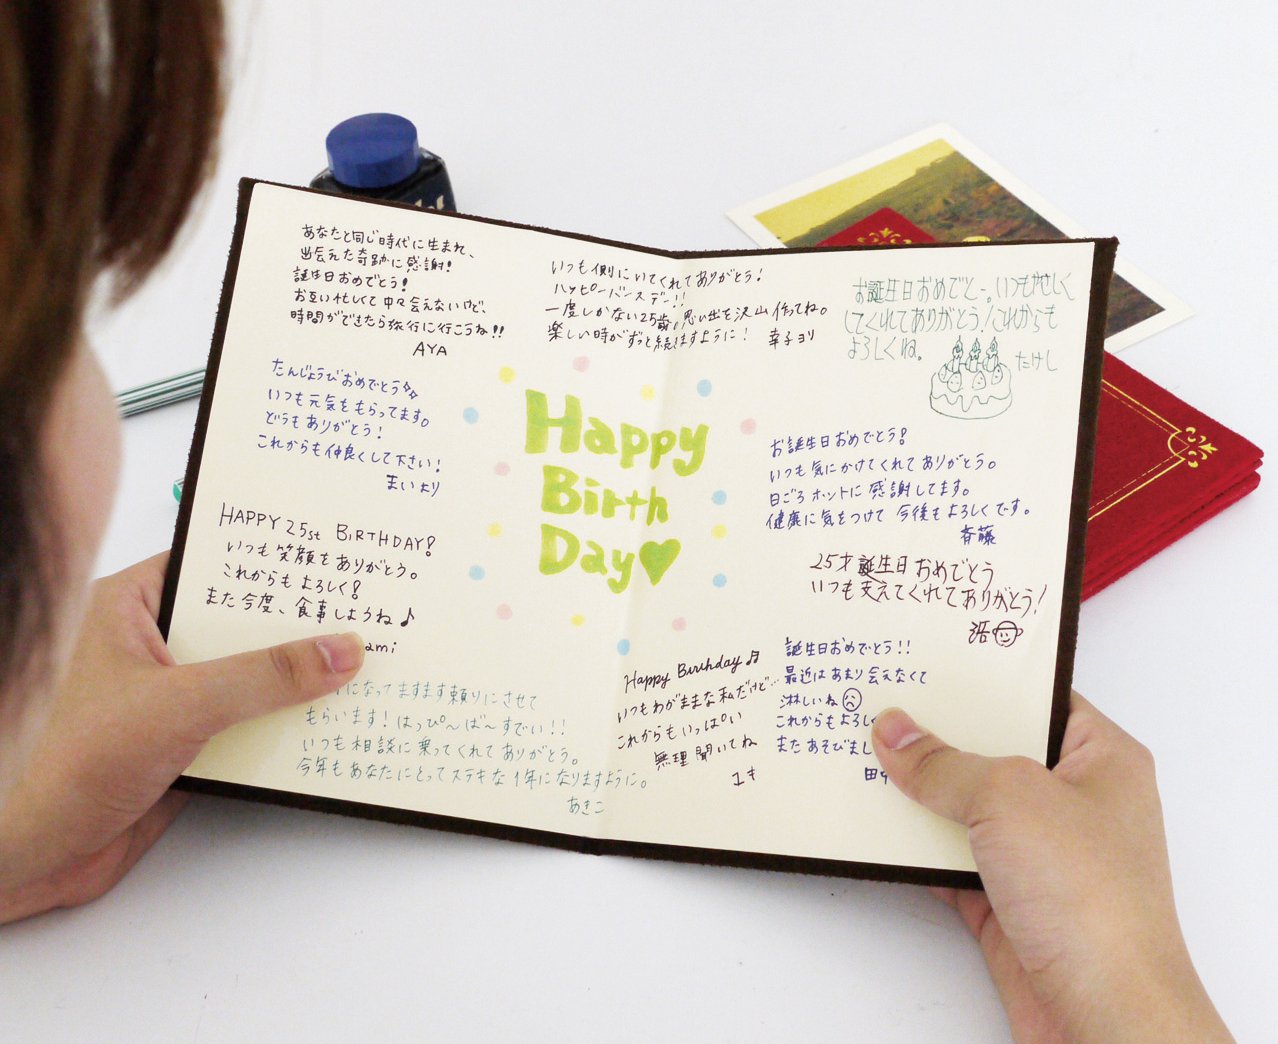 あなたと同じ時代に生まれ、
出会えた奇跡に感謝!
誕生日おめでとう!
お互い忙しくて中々会えないけど、
時間ができたら旅行に行こうね!!
AYA
たんじょうびおめでとう
いつも元気をもらってます。
どうもありがとう!
これからも仲良くして下さい!
まいより
HAPPY 25st BIRTHDAY!
いつも笑顔をありがとう。
これからもよろしく!
また今度、食事しようね♪
ami
になってますます頼りにさせて
もらいます!はっぴ〜ば〜すでい!!
いつも相談に乗ってくれてありがとう。
今年もあなたにとってステキな1年になりますように。
あきこ
いつも側にいてくれてありがとう!
ハッピーバースデー!!
一度しかない25歳、思い出を沢山作ってね。
楽しい時がずっと続きますように!
幸子ヨリ
Happy
Birth
Day♥
Happy Birthday♫
いつもわがままな私だけど…
これからもいっぱい
無理聞いてね
ユキ
お誕生日おめでとー。いつもやさしく
してくれてありがとう!これからも
よろしくね。
たけし
お誕生日おめでとう!
いつも気にかけてくれてありがとう。
日ごろホントに感謝してます。
健康に気をつけて今後もよろしくです。
斉藤
25才誕生日おめでとう
いつも支えてくれてありがとう!
浩
誕生日おめでとう!!
最近はあまり会えなくて
淋しいね
これからもよろし
またあそびまし
田